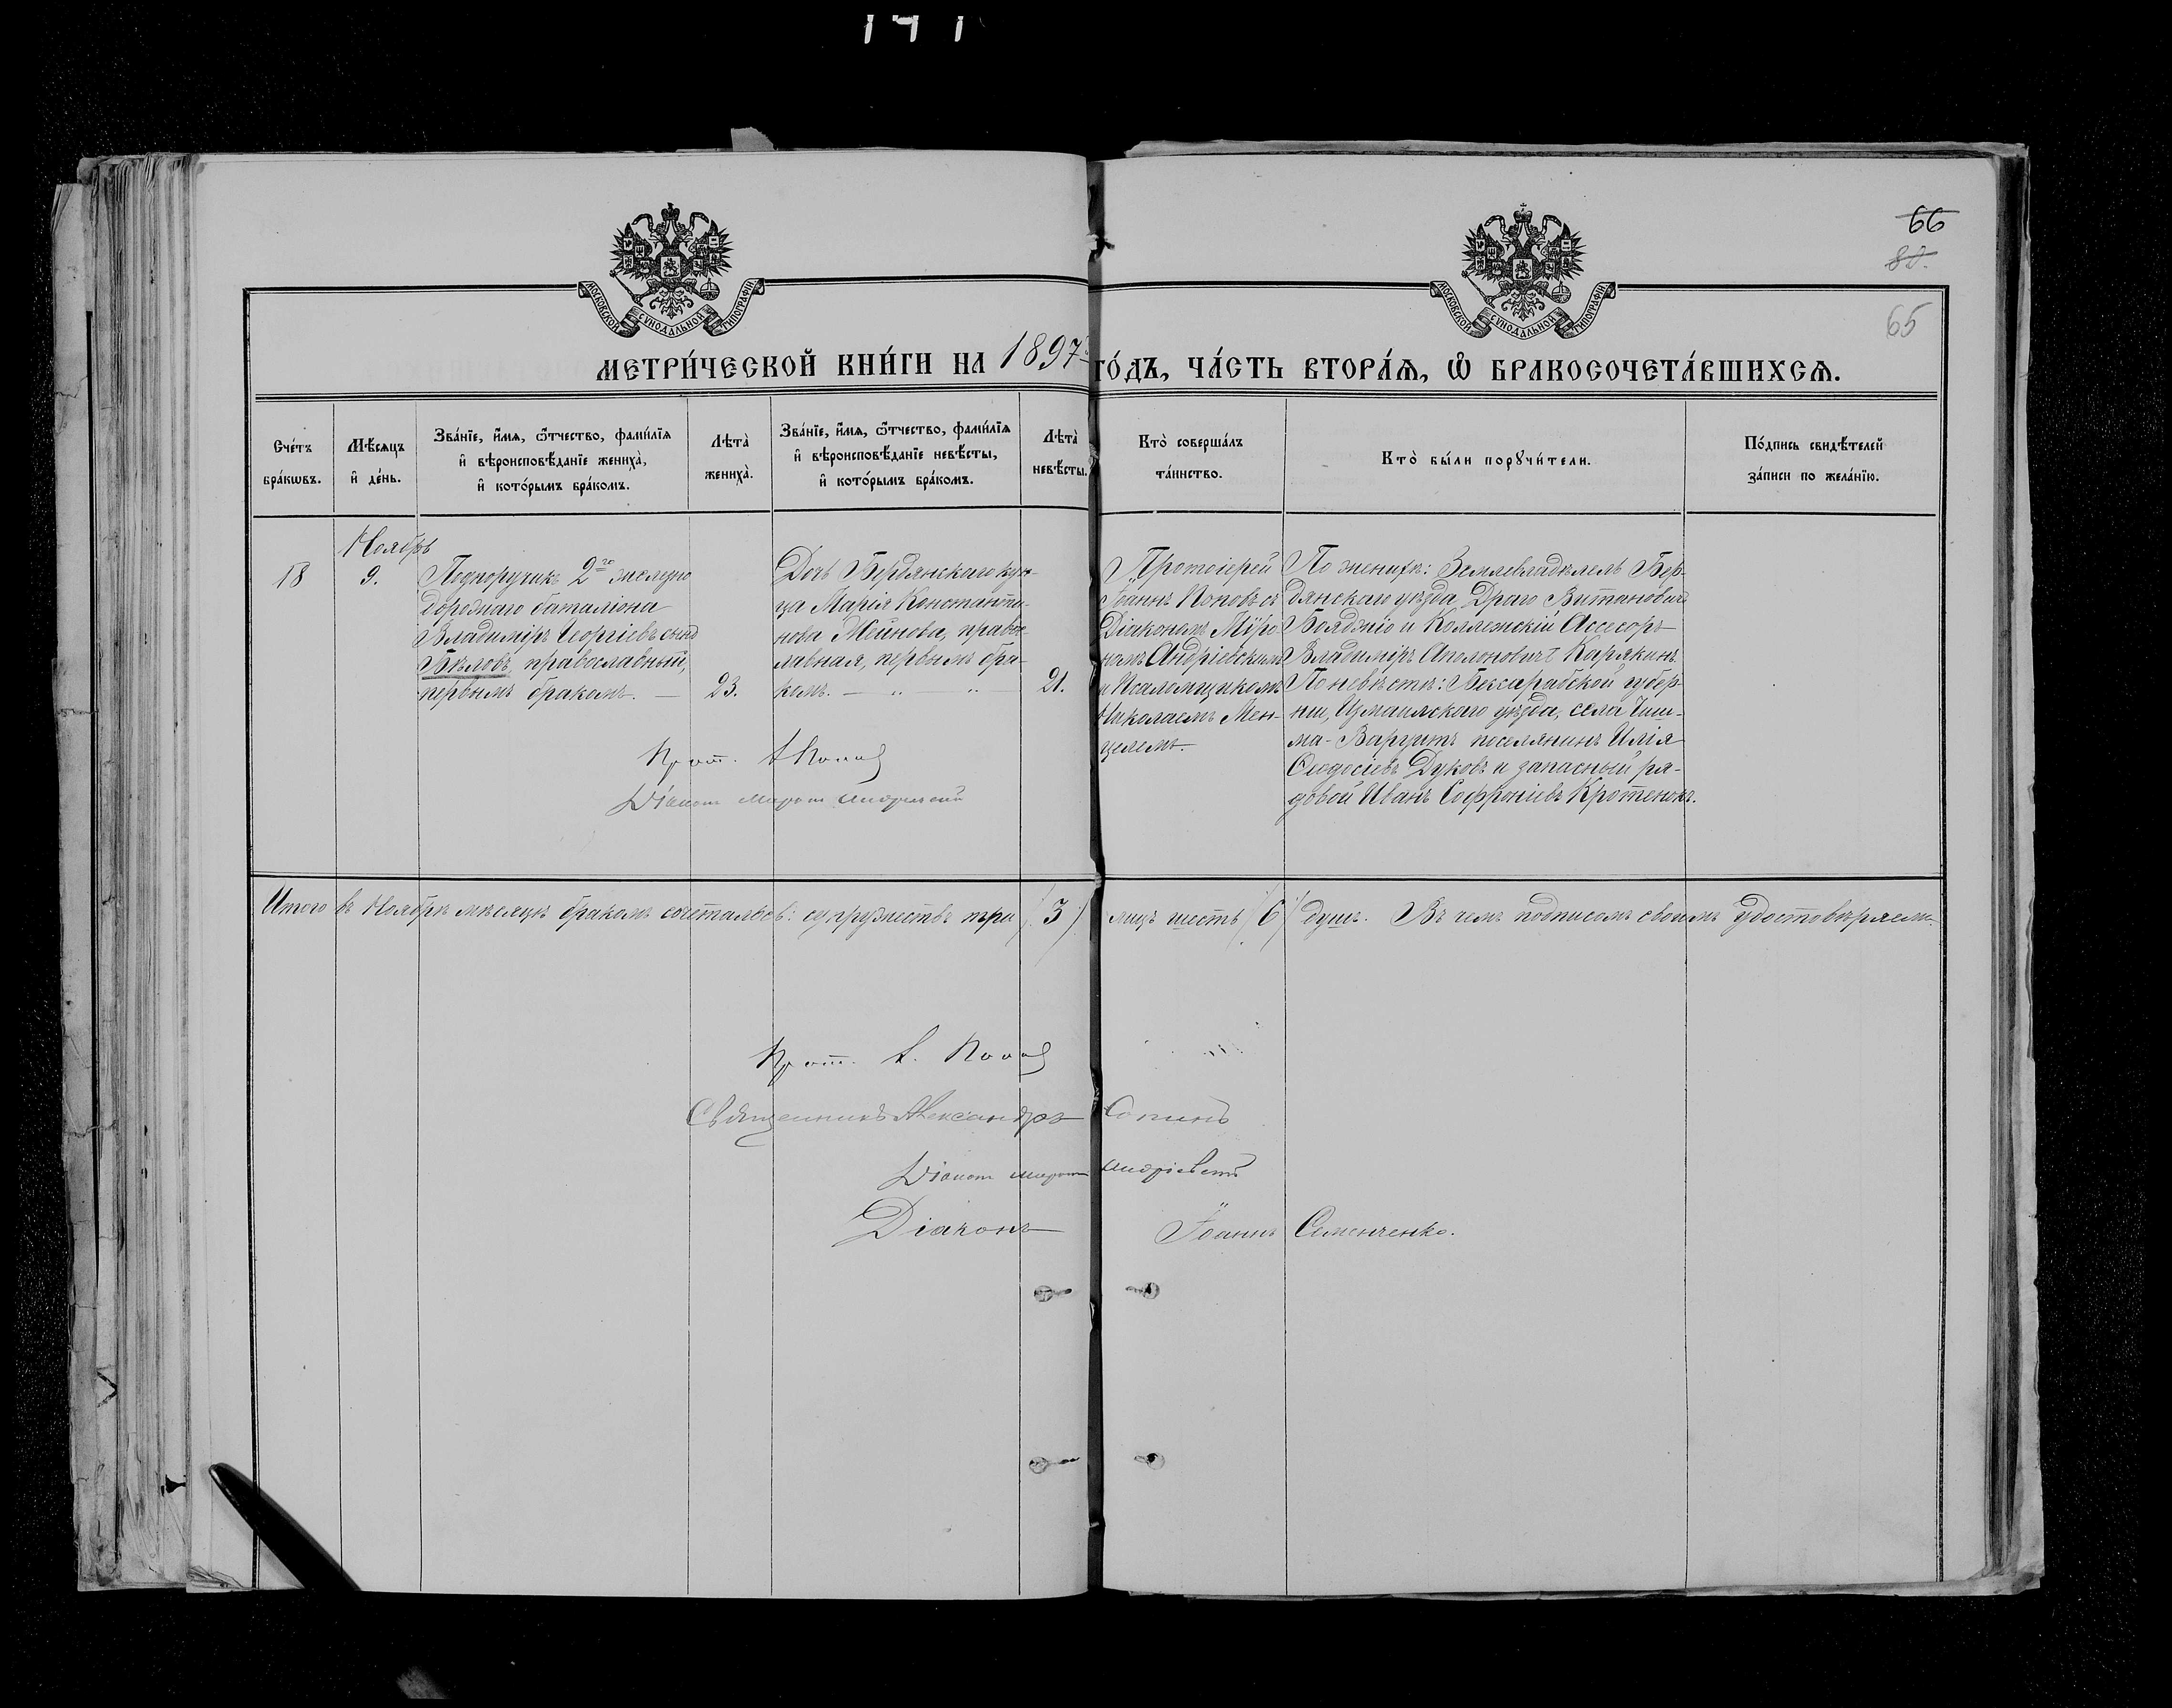 141
66
82.
65
МОСКОВСКОЙ СѴНОДАЛЬНОЙ ТИПОГРАФІИ
МОСКОВСКОЙ СѴНОДАЛЬНОЙ ТИПОГРАФІИ
МЕТРИ́ЧЕСКОЙ КНИ́ГИ НА 1897 ГО́ДЪ, ЧА́СТЬ ВТОРА́Ѧ, Ѽ БРАКОСОЧЕТА́ВШИХСѦ.
Сче́тъ
бра́кѡвъ.
Мѣ́сѧцъ
и҆ де́нь.
Зва́нїе, и҆́мѧ, ѻ҆́тчество, фами́лїѧ
и҆ вѣроисповѣ́данїе жениха̀,
и҆ кото́рымъ бра́комъ.
Лѣта̀
жениха̀.
Зва́нїе, и҆́мѧ, ѻ҆́тчество, фами́лїѧ
и҆ вѣроисповѣ́данїе невѣ́сты,
и҆ кото́рымъ бра́комъ.
Лѣта̀
невѣ́сты.
Кто̀ соверша́лъ
та́инство.
Кто̀ бы́ли порꙋчи́тели.
По́дпись свидѣ́телей
за́писи по жела́нїю.
18
Ноябрь
9.
Подпоручикъ 2го желѣзно
дорожнаго баталіона
Владиміръ Георгіевъ сынъ
Бѣловъ, православный,
первымъ бракомъ. —
23.
Дочь Бердянскаго куп-
ца Марія Константи-
нова Мейнова, правос-
лавная, первымъ бра-
комъ. — " "
21.
Протоіерей
Іоаннъ Поповъ съ
Діакономъ Мѵро-
номъ Андріевскимъ
и Псаломщикомъ
Николаемъ Мен-
целемъ.
По женихѣ: Землевладѣлецъ Бер-
дянскаго уѣзда Драго Витановичъ
Бояджіо и Коллежскій Ассесоръ
Владиміръ Аполоновичъ Карякинъ.
По невѣстѣ: Бессарабской губер-
ніи, Измаилскаго уѣзда, села Чиш-
ма-Варуитъ поселянинъ Илія
Ѳеодосіевъ Дуковъ и запасный ря-
довой Иванъ Софроніевъ Кротенокъ.
Прот. І Поповъ
Діаконъ Миронъ Андріевскій
Итого въ Ноябрѣ мѣсяцѣ бракомъ сочеталось: супружествъ три (3) лицъ шесть (6) душъ. Въ чемъ подписомъ своимъ удостовѣряемъ.
Прот. І. Поповъ
Священникъ Александръ Сопинъ
Діаконъ Миронъ Андріевскій
Діаконъ Іоаннъ Семенченко.